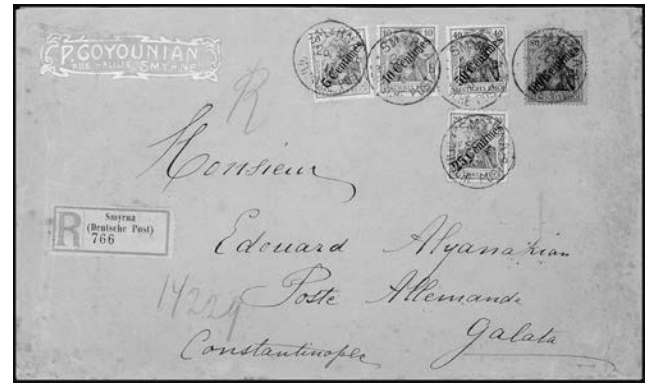 P. GOYOUNIAN
SMYRNE
10 10
40 40
5 Centimes
10 Centimes
50 Centimes
100 Centimes
25 Centimes
R
Monsieur
R
Smyrna
(Deutsche Post)
766
Edouard Alyanakian
14229
Poste Allemande
Galata
Constantinople